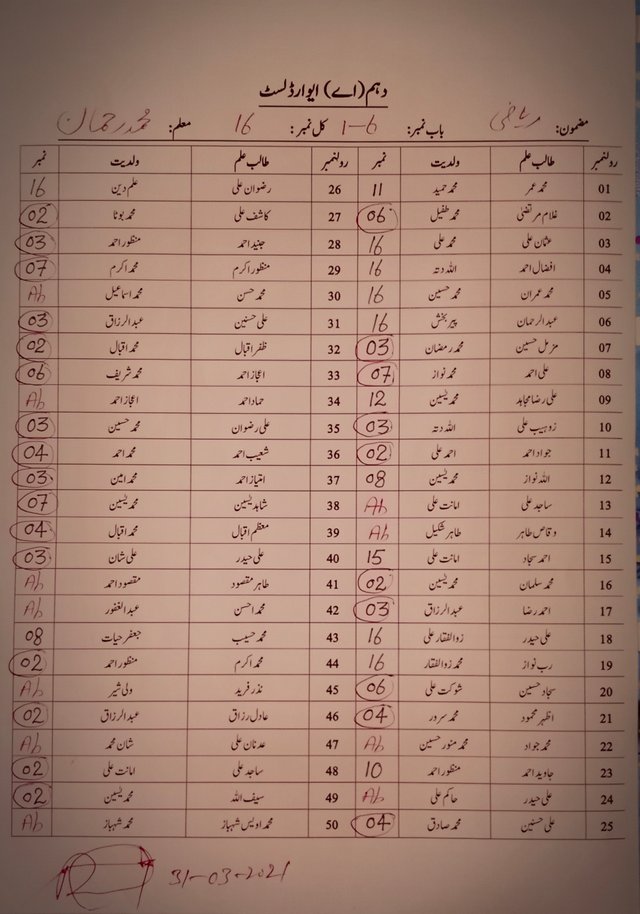 دہم (اے) ایوارڈ لسٹ
مضمون: ریاضی باب نمبر: 1-6 کل نمبر: 16 معلم: محمد رحمان
رولنمبر طالب علم ولدیت نمبر رولنمبر طالب علم ولدیت نمبر
01 محمد عمر محمد حمید 11 26 رضوان علی علم دین 16
02 غلام مرتضیٰ محمد طفیل 06 27 کاشف علی محمد بوٹا 02
03 عثمان علی محمد علی 16 28 جنید احمد منظور احمد 03
04 افضال احمد اللہ دتہ 16 29 منظور اکرم محمد اکرم 07
05 محمد عمران محمد حسین 16 30 محمد حسن محمد اسماعیل Ab
06 عبدالرحمان پیر بخش 16 31 علی حسنین عبدالرزاق 03
07 مزمل حسین محمد رمضان 03 32 ظفر اقبال محمد اقبال 02
08 علی احمد محمد نواز 07 33 اعجاز احمد محمد شریف 06
09 علی رضا مجاہد محمد یٰسین 12 34 حماد احمد اعجاز احمد Ab
10 زوہیب علی اللہ دتہ 03 35 علی رضوان محمد حسین 03
11 جواد احمد احمد علی 02 36 شعیب احمد محمد احمد 04
12 اللہ نواز محمد یٰسین 08 37 امتیاز احمد محمد امین 03
13 ساجد علی امانت علی Ab 38 شاہد یٰسین محمد یٰسین 07
14 وقاص طاہر طاہر شکیل Ab 39 معظم اقبال محمد اقبال 04
15 احمد سجاد امانت علی 15 40 علی حیدر علی شان 03
16 محمد سلمان محمد یٰسین 02 41 طاہر مقصود مقصود احمد Ab
17 احمد رضا عبدالرزاق 03 42 محمد احسن عبدالغفور Ab
18 علی حیدر زوالفقار علی 16 43 محمد حسیب جعفر حیات 08
19 رب نواز محمد زوالفقار 16 44 محمد اکرم منظور احمد 02
20 سجاد حسین شوکت علی 06 45 نذر فرید ولی شیر Ab
21 اظہر محمود محمد سرور 04 46 عادل رزاق عبدالرزاق 02
22 محمد جواد محمد منور حسین Ab 47 عدنان علی شان محمد Ab
23 جاوید احمد منظور احمد 10 48 ساجد علی امانت علی 02
24 علی حیدر حاکم علی Ab 49 سیف اللہ محمد یٰسین 02
25 علی حسنین محمد صادق 04 50 محمد اویس شہباز محمد شہباز Ab
31-03-2021